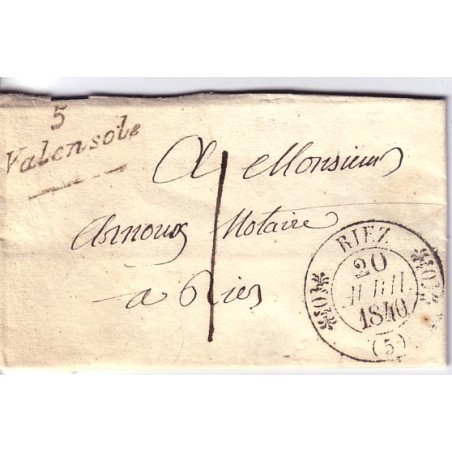 5
Valensole
A Monsieur
Arnoux Notaire
a Riez
1
RIEZ
20
1840
(5)